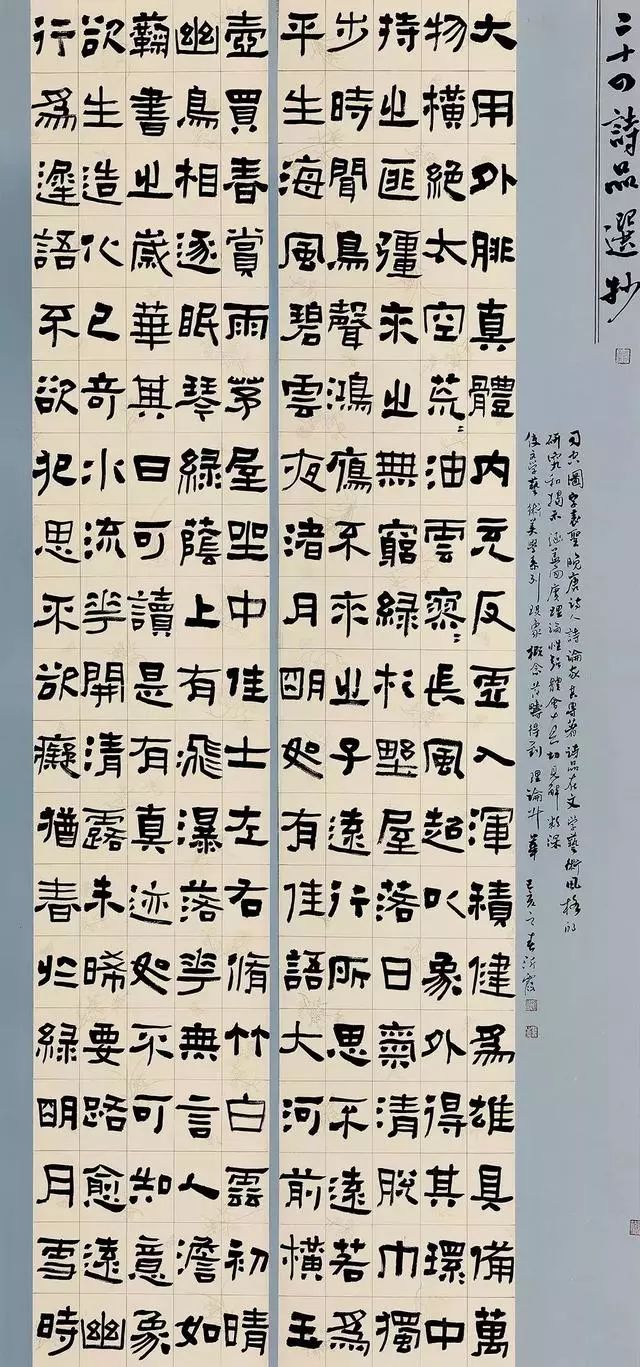 二十四詩品選抄
司空圖字表聖晚唐詩人詩論家其專著詩品在文學藝術風格的
研究和揭示涵蓋面廣理論性強體會切見解精深
使文學藝術美學系列現象概念得到理論升華 己亥之春沂霞
大用外腓真體內充反虛入渾積健為雄具備萬
物橫絕太空荒〻油雲寥〻長風超以象外得其環中
持之匪彊來之無窮綠杉野屋落日氣清脫巾獨
步時聞鳥聲鴻鴈不來之子遠行所思不遠若為
平生海風碧雲夜渚月明如有佳語大河前橫玉
壺買春賞雨茅屋坐中佳士左右脩竹白雲初晴
幽鳥相逐眠琴綠蔭上有飛瀑落花無言人澹如
菊書之歲華其曰可讀是有真迹如不可知意象
欲生造化已奇水流花開清露未晞要路愈遠幽
行為遲語不欲犯思不欲癡猶春於綠明月雪時